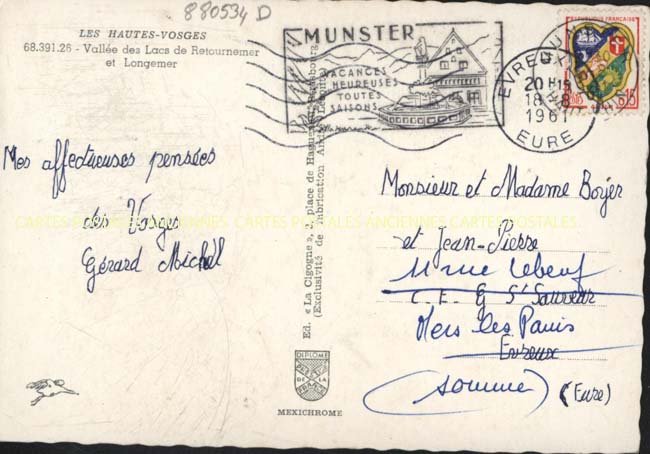 880534 D
LES HAUTES-VOSGES
68.391.26 - Vallée des Lacs de Retournemer
et Longemer
MUNSTER
VACANCES
HEUREUSES
TOUTES
SAISONS
EVREUX
20 H 15
18 - 8
1961
EURE
REPUBLIQUE FRANÇAISE
0,15
Mes affectueuses pensées
des Vosges
Gérard Michel
CARTES POSTALES ANCIENNES CARTES POSTALES ANCIENNES CARTES POSTALES
Ed. « La Cigogne », place de Haguenau, Strasbourg
(Exclusivité de fabrication André
DIPLOME
DE LA
MEXICHROME
Monsieur et Madame Boyer
et Jean-Pierre
11 rue Lebeuf
C. E. G St Sauveur
Mers les Bains
Evreux
(Somme) (Eure)